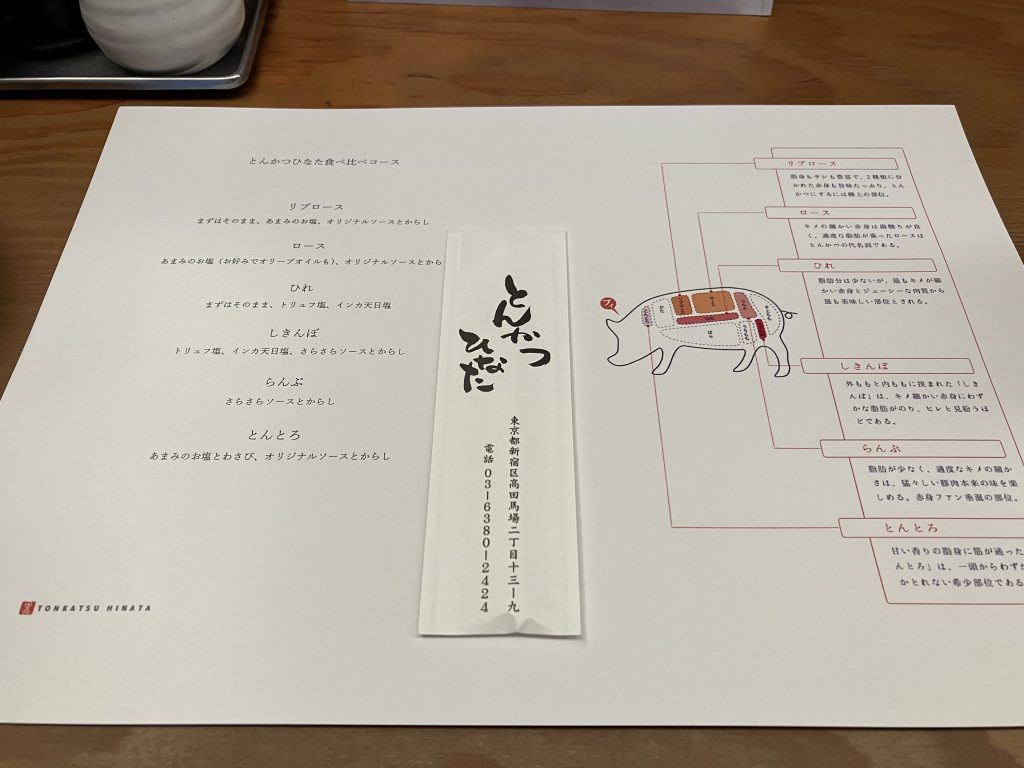 とんかつひなた食べ比べコース
リブロース
まずはそのまま、あまみのお塩、オリジナルソースとからし
ロース
あまみのお塩（お好みでオリーブオイルも）、オリジナルソースとから
ひれ
まずはそのまま、トリュフ塩、インカ天日塩
しきんぼ
トリュフ塩、インカ天日塩、さらさらソースとからし
らんぷ
さらさらソースとからし
とんとろ
あまみのお塩とわさび、オリジナルソースとからし
TONKATSU HINATA
とんかつ
ひなた
東京都新宿区高田馬場二丁目十三ー九
電話 03ー6380ー2424
リブロース
脂身もサシも豊富で、2種類に分
かれた赤身も旨味たっぷり。とん
かつにするには極上の部位。
ロース
キメの細かい赤身は歯触りが良
く、適度な脂肪が乗ったロースは
とんかつの代名詞である。
ひれ
脂肪分は少ないが、最もキメが細
かい赤身とジューシーな肉質から
最も美味しい部位とされる。
しきんぼ
外ももと内ももに挟まれた「しき
んぼ」は、キメ細かい赤身にわず
かな脂肪がのり、ヒレと見紛うほ
どである。
らんぷ
脂肪が少なく、適度なキメの細か
さは、猛々しい豚肉本来の味を楽
しめる。赤身ファン垂涎の部位。
とんとろ
甘い香りの脂身に筋が通った
んとろ」は、一頭からわずか
かとれない希少部位である
ブィ
かた
ロース
ばら